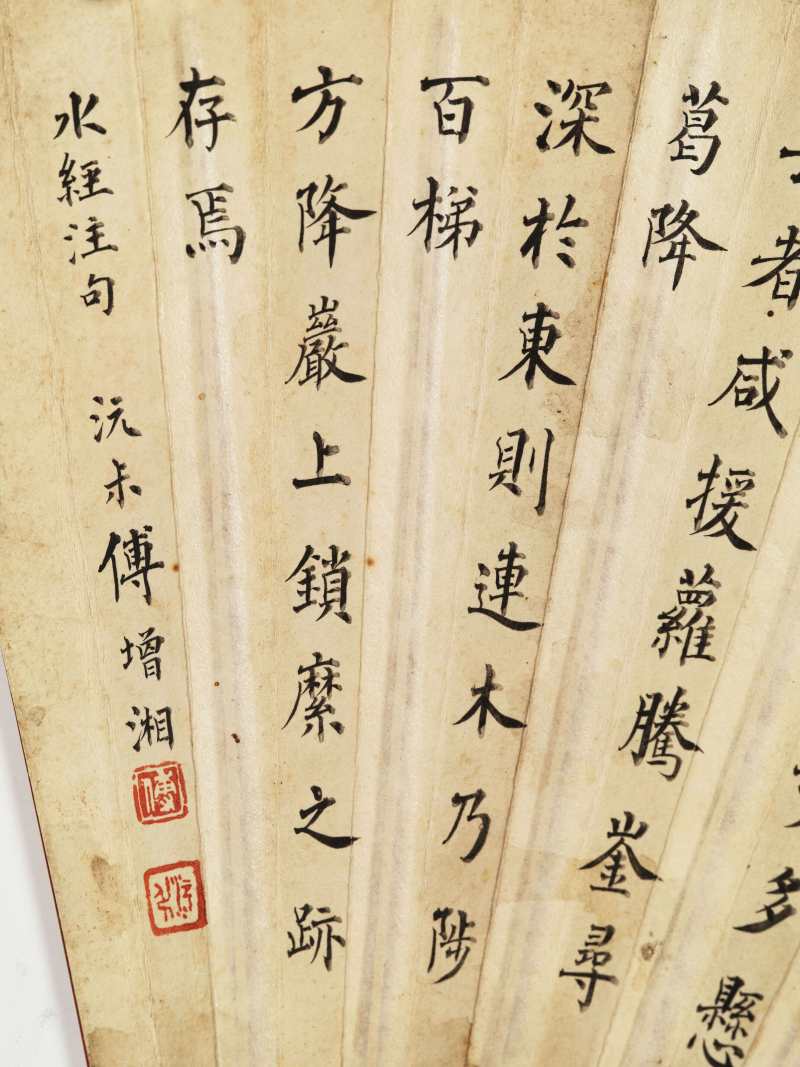 多懸
者咸援蘿騰崟尋
葛降
深於東則連木乃陟
百梯
方降巖上鎖縻之跡
存焉
水經注句 沅尗傅增湘
傅